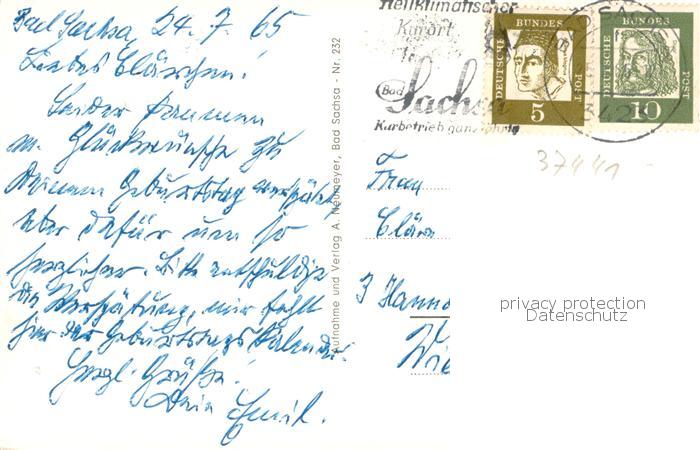 Bad Sachsa, 24.7.65
Liebes Clärchen!
Leider kommen
m. Glückwünsche zu
Deinem Geburtstag verspätet,
aber dafür um so
herzlicher. Bitte entschuldige
die Verspätung, mir fehlt
hier der Geburtstagskalender.
Herzl. Grüße!
Dein Emil.
Aufnahme und Verlag A. Neumeyer, Bad Sachsa - Nr. 232
Heilklimatischer
Kurort
Bad
Sachsa
Kurbetrieb ganzjährig
DEUTSCHE BUNDESPOST
5
DEUTSCHE BUNDESPOST
10
37441
Frau
Cläre
3 Hanno
Wie
privacy protection
Datenschutz